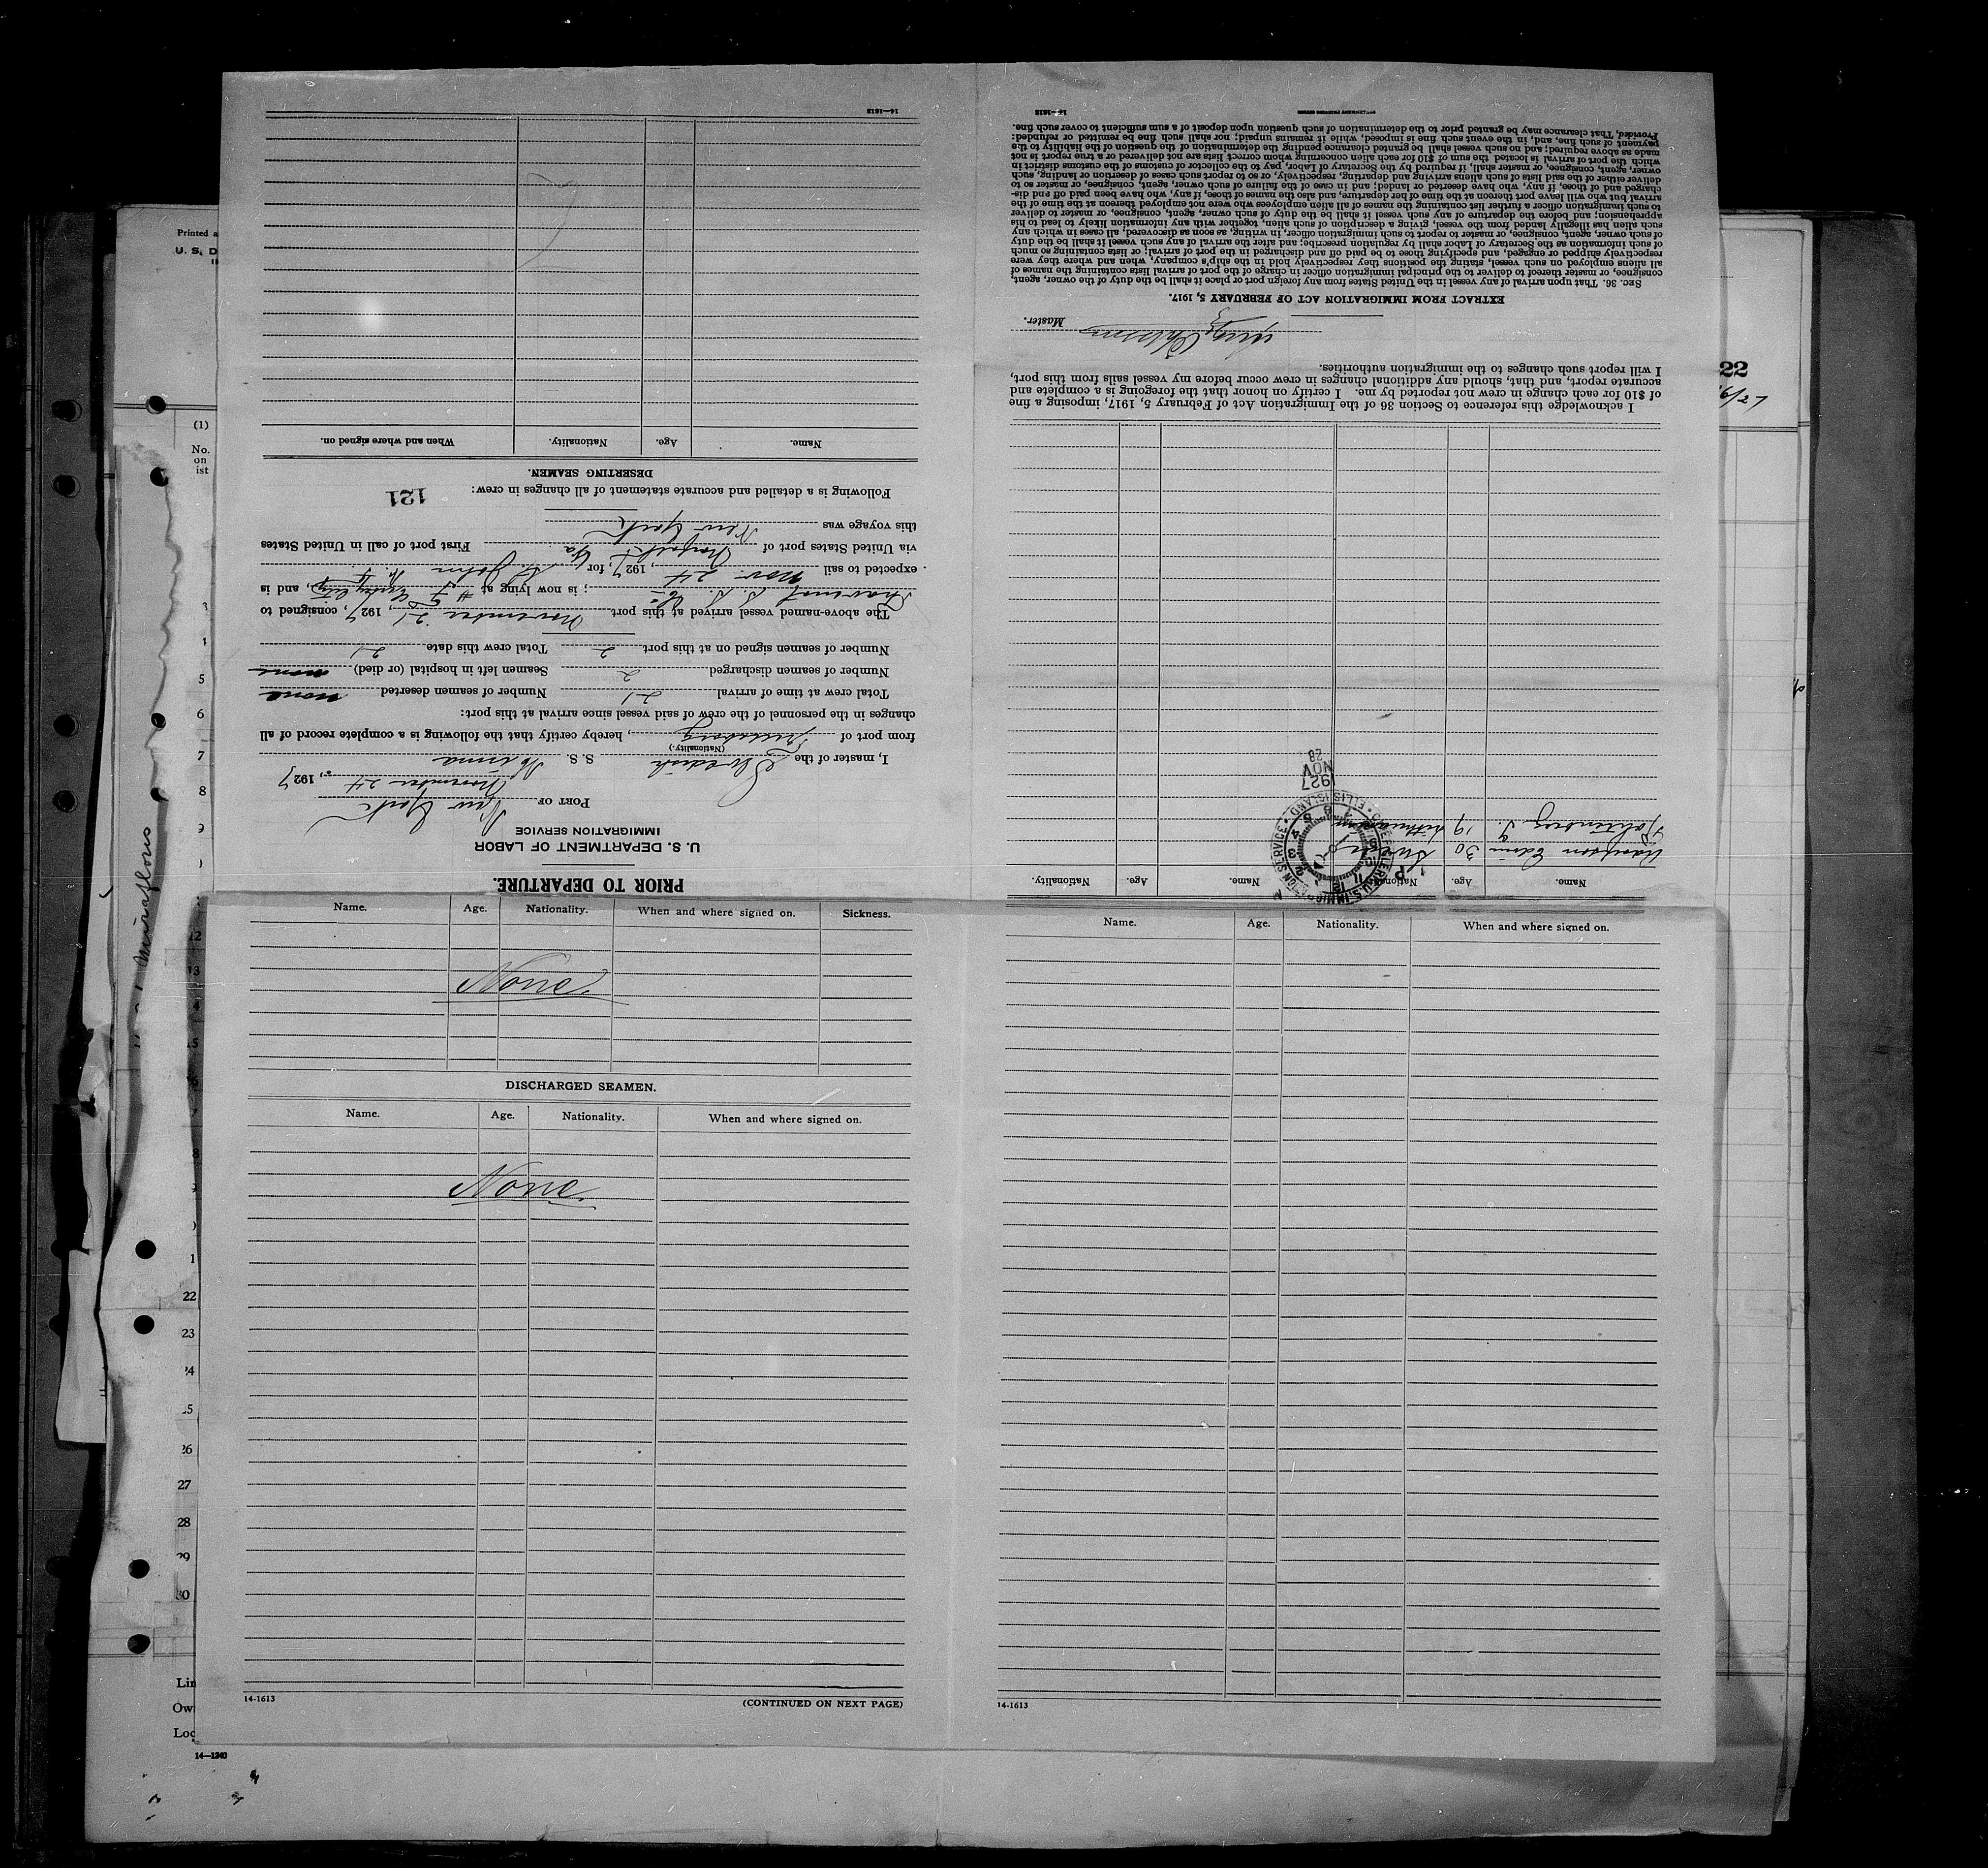 PRIOR TO DEPARTURE.
U. S. DEPARTMENT OF LABOR
IMMIGRATION SERVICE
PORT OF New York
November 24, 1927
I, master of the Swedish S. S.
(Nationality.)
from port of, hereby certify that the following is a complete record of all
changes in the personnel of the crew of said vessel since arrival at this port:
Total crew at time of arrival 21 Number of seamen deserted none
Number of seamen discharged 2 Seamen left in hospital (or died) none
Number of seamen signed on at this port 2 Total crew this date 21
The above-named vessel arrived at this port November 21, 1927, consigned to
S. S. Co; is now lying at # 7, and is
expected to sail Nov. 24, 1927, for St John
via United States port of Norfolk Va First port of call in United States
this voyage was New York
Following is a detailed and accurate statement of all changes in crew:
121
DESERTING SEAMEN.
Name. Age. Nationality. When and where signed on.
14—1613
Name. Age. Nationality. Name. Age. Nationality.
Edwin 30
19
1927
NOV
28
ELLIS ISLAND
I acknowledge this reference to Section 36 of the Immigration Act of February 5, 1917, imposing a fine
of $10 for each change in crew not reported by me. I certify on honor that the foregoing is a complete and
accurate report, and that, should any additional changes in crew occur before my vessel sails from this port,
I will report such changes to the immigration authorities.
Master.
EXTRACT FROM IMMIGRATION ACT OF FEBRUARY 5, 1917.
SEC. 36. That upon arrival of any vessel in the United States from any foreign port or place it shall be the duty of the owner, agent,
consignee, or master thereof to deliver to the principal immigration officer in charge of the port of arrival lists containing the names of
all aliens employed on such vessel, stating the positions they respectively hold in the ship's company, when and where they were
respectively shipped or engaged, and specifying those to be paid off and discharged in the port of arrival; or lists containing so much
of such information as the Secretary of Labor shall by regulation prescribe; and after the arrival of any such vessel it shall be the duty
of such owner, agent, consignee, or master to report to such immigration officer, in writing, as soon as discovered, all cases in which any
such alien has illegally landed from the vessel, giving a description of such alien, together with any information likely to lead to his
apprehension; and before the departure of any such vessel it shall be the duty of such owner, agent, consignee, or master to deliver
to such immigration officer a further list containing the names of all alien employees who were not employed thereon at the time of the
arrival but who will leave port thereon at the time of her departure, and also the names of those, if any, who have been paid off and dis-
charged and of those, if any, who have deserted or landed; and in case of the failure of such owner, agent, consignee, or master so to
deliver either of the said lists of such aliens arriving and departing, respectively, or so to report such cases of desertion or landing, such
owner, agent, consignee, or master shall, if required by the Secretary of Labor, pay to the collector of customs of the customs district in
which the port of arrival is located the sum of $10 for each alien concerning whom correct lists are not delivered or a true report is not
made as above required; and no such vessel shall be granted clearance pending the determination of the question of the liability to the
payment of such fine, and, in the event such fine is imposed, while it remains unpaid; nor shall such fine be remitted or refunded:
Provided, That clearance may be granted prior to the determination of such question upon deposit of a sum sufficient to cover such fine.
14—1613
Name. Age. Nationality. When and where signed on. Sickness.
None
DISCHARGED SEAMEN.
Name. Age. Nationality. When and where signed on.
None
14-1613 (CONTINUED ON NEXT PAGE)
Name. Age. Nationality. When and where signed on.
14-1613
Printed a
U. S. D
(1)
No.
on
ist
5
6
7
8
22
23
27
28
14—1240
22